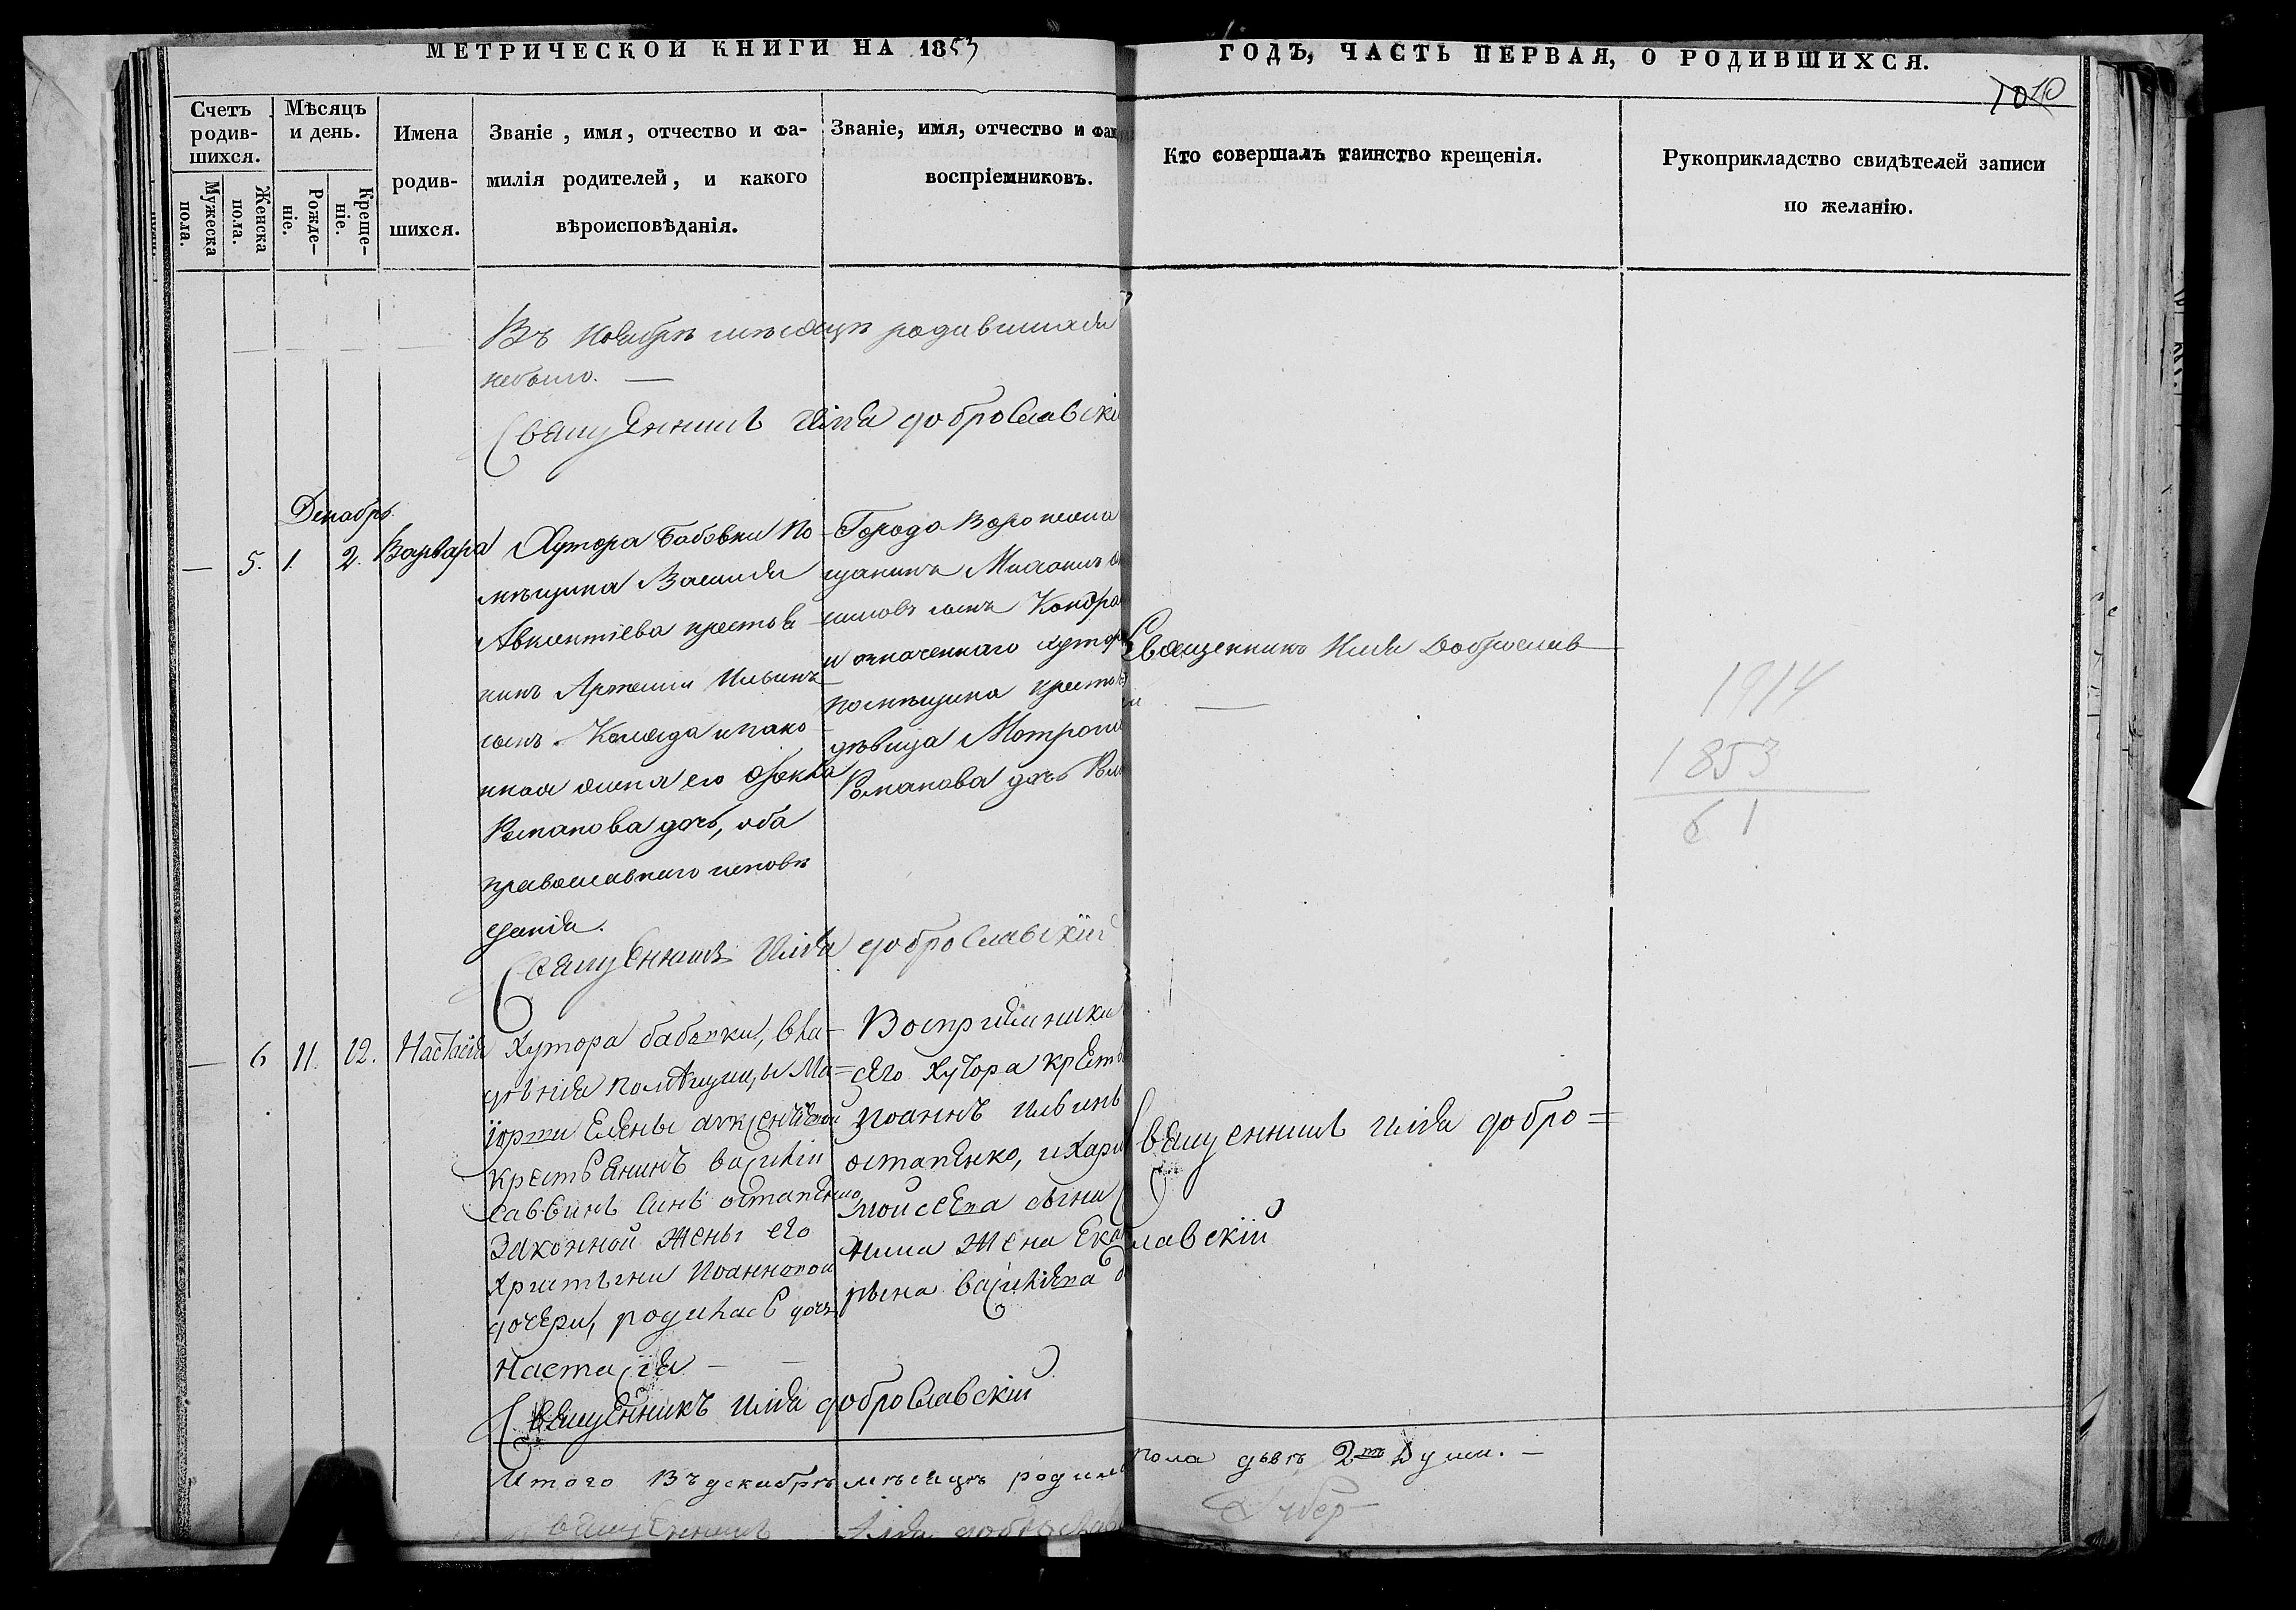 МЕТРИЧЕСКОЙ КНИГИ НА 1853
ГОДЪ, ЧАСТЬ ПЕРВАЯ, О РОДИВШИХСЯ.
1010
Счетъ
родив-
шихся.
Мужеска
пола.
Женска
пола.
Мѣсяцъ
и день.
Рожде-
ніе.
Креще-
ніе.
Имена
родив-
шихся.
Званіе, имя, отчество и фа-
милія родителей, и какого
вѣроисповѣданія.
Званіе, имя, отчество и фам
воспріемниковъ.
Кто совершалъ таинство крещенія.
Рукоприкладство свидѣтелей записи
по желанію.
Въ ноябрѣ мѣсяцѣ родившихся
небыло. —
Священникъ Илія доброславскі
Декабрь
— 5. 1. 2. Варвара
Хутора Бабовки по
мѣщика Василія
Авксентіева крестья
нинъ Артемій Ильинъ
сынъ Коляда и зако
нная жена его Ѳекла
Романова дочь, оба
православнаго исповѣ
данія.
Города
щанинъ
сынъ Кондра
и означеннаго хутора
помѣщика крестья
дѣвица Мотрона
Романова дочь
Священникъ Илія Доброслав
1914
1853
61
Священникъ Илія доброславскій
— 6 11. 12. Настасія
Хутора бабовки, вла-
дѣнія помѣщицы Ма-
іорши Елены авксентіевой
крестьянинъ василій
саввинъ синъ остапенко,
законной жены его
Христины Иоанновой
дочери, родилась дочь
Настасія — —
Воспріемники
сего хутора кресть
Иоаннъ ильинъ
остапенко, и
мойсеева сына
жена Ека
рына василіева
Священникъ илія добро=
славскій
Священникъ Илія доброславскій
Итого въ декабрѣ мѣсяцѣ родил
пола двѣ 2 души. —
Священникъ Илія доброслав